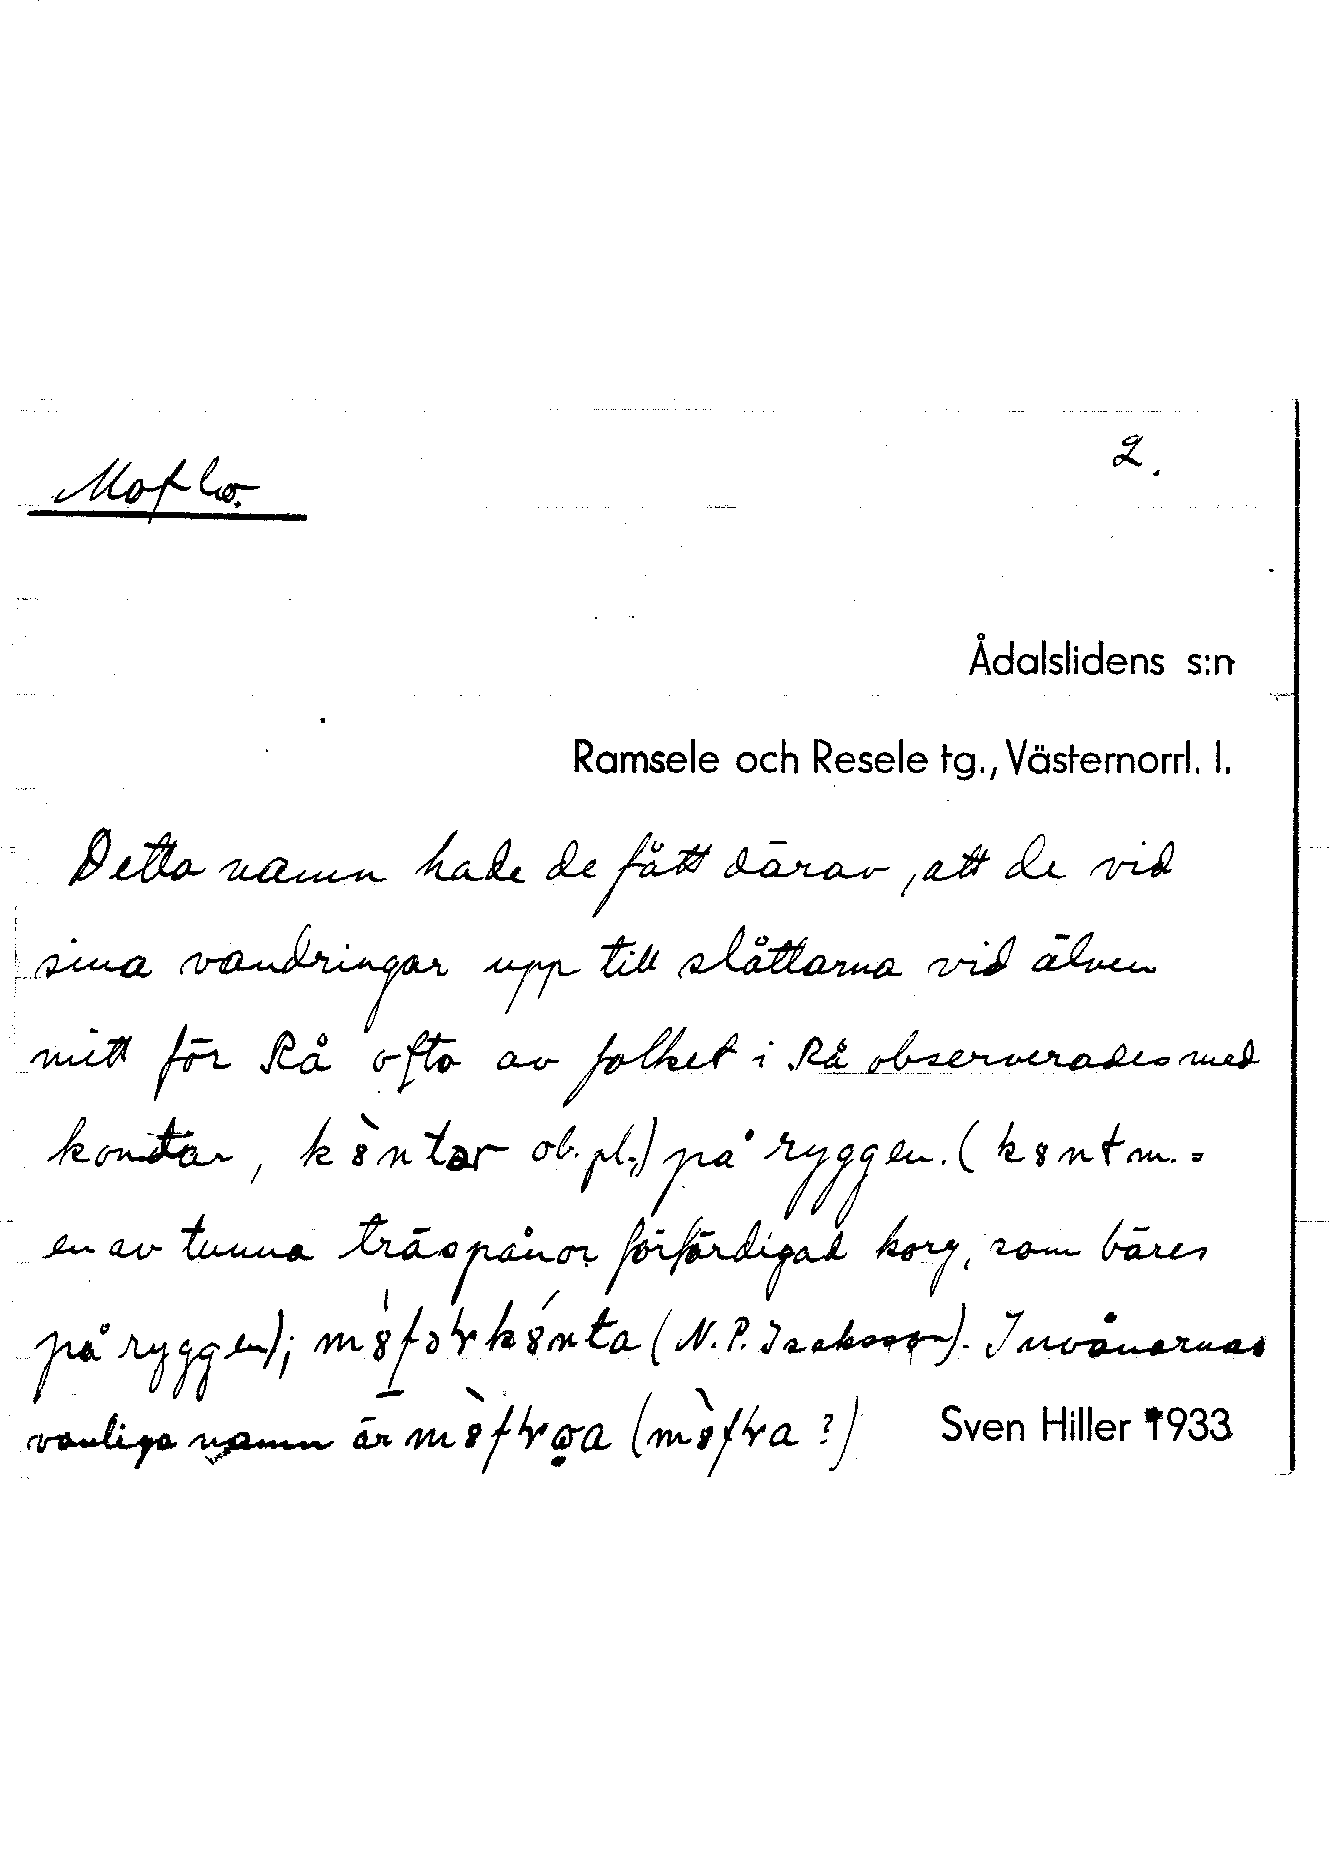 Moflo.
2.
Ådalslidens s:n
Ramsele och Resele tg., Västernorrl. l.
Detta namn hade de fått därav, att de vid
sina vandringar upp till slåttarna vid älven
mitt för Rå ofta av folket i Rå observerades med
kontar, ob. pl.) på ryggen. (k8nt m. =
en av tunna träspånor förfärdigad korg, som bäres
på ryggen); (N. P. Isaksson). Invånarnas
vanliga namn är
Sven Hiller 1933